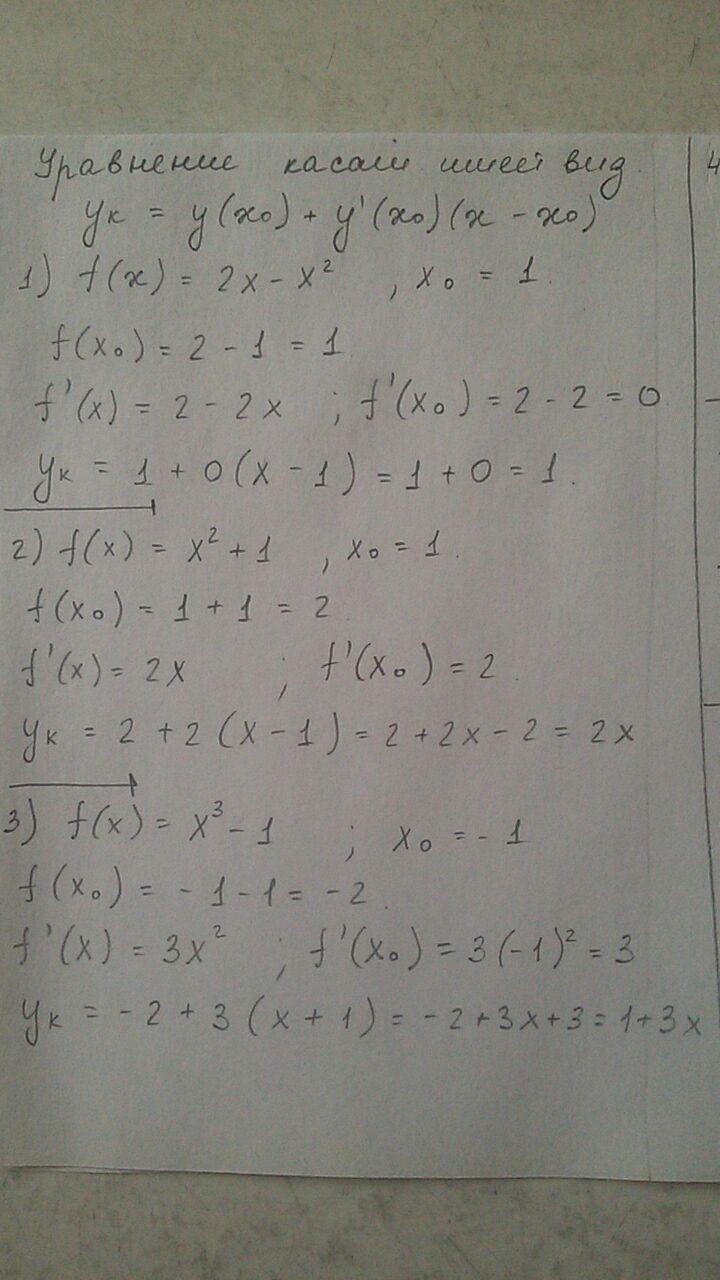 Уравнение касат имеет вид
yк = y(x₀) + y'(x₀)(x - x₀)
1) f(x) = 2x - x² , x₀ = 1.
f(x₀) = 2 - 1 = 1
f'(x) = 2 - 2x ; f'(x₀) = 2 - 2 = 0
yк = 1 + 0(x - 1) = 1 + 0 = 1.
2) f(x) = x² + 1 , x₀ = 1.
f(x₀) = 1 + 1 = 2
f'(x) = 2x ; f'(x₀) = 2.
yк = 2 + 2(x - 1) = 2 + 2x - 2 = 2x
3) f(x) = x³ - 1 ; x₀ = - 1
f(x₀) = - 1 - 1 = - 2.
f'(x) = 3x² ; f'(x₀) = 3(-1)² = 3
yк = - 2 + 3(x + 1) = - 2 + 3x + 3 = 1 + 3x
4